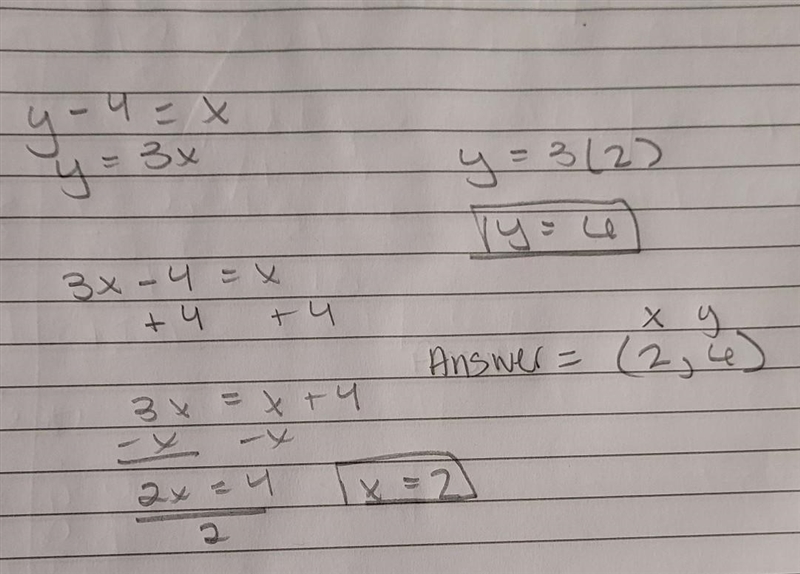 y - 4 = x
y = 3x
3x - 4 = x
+4 +4
3x = x + 4
-x -x
2x = 4
2
x = 2
y = 3(2)
y = 6
x y
Answer = (2, 6)